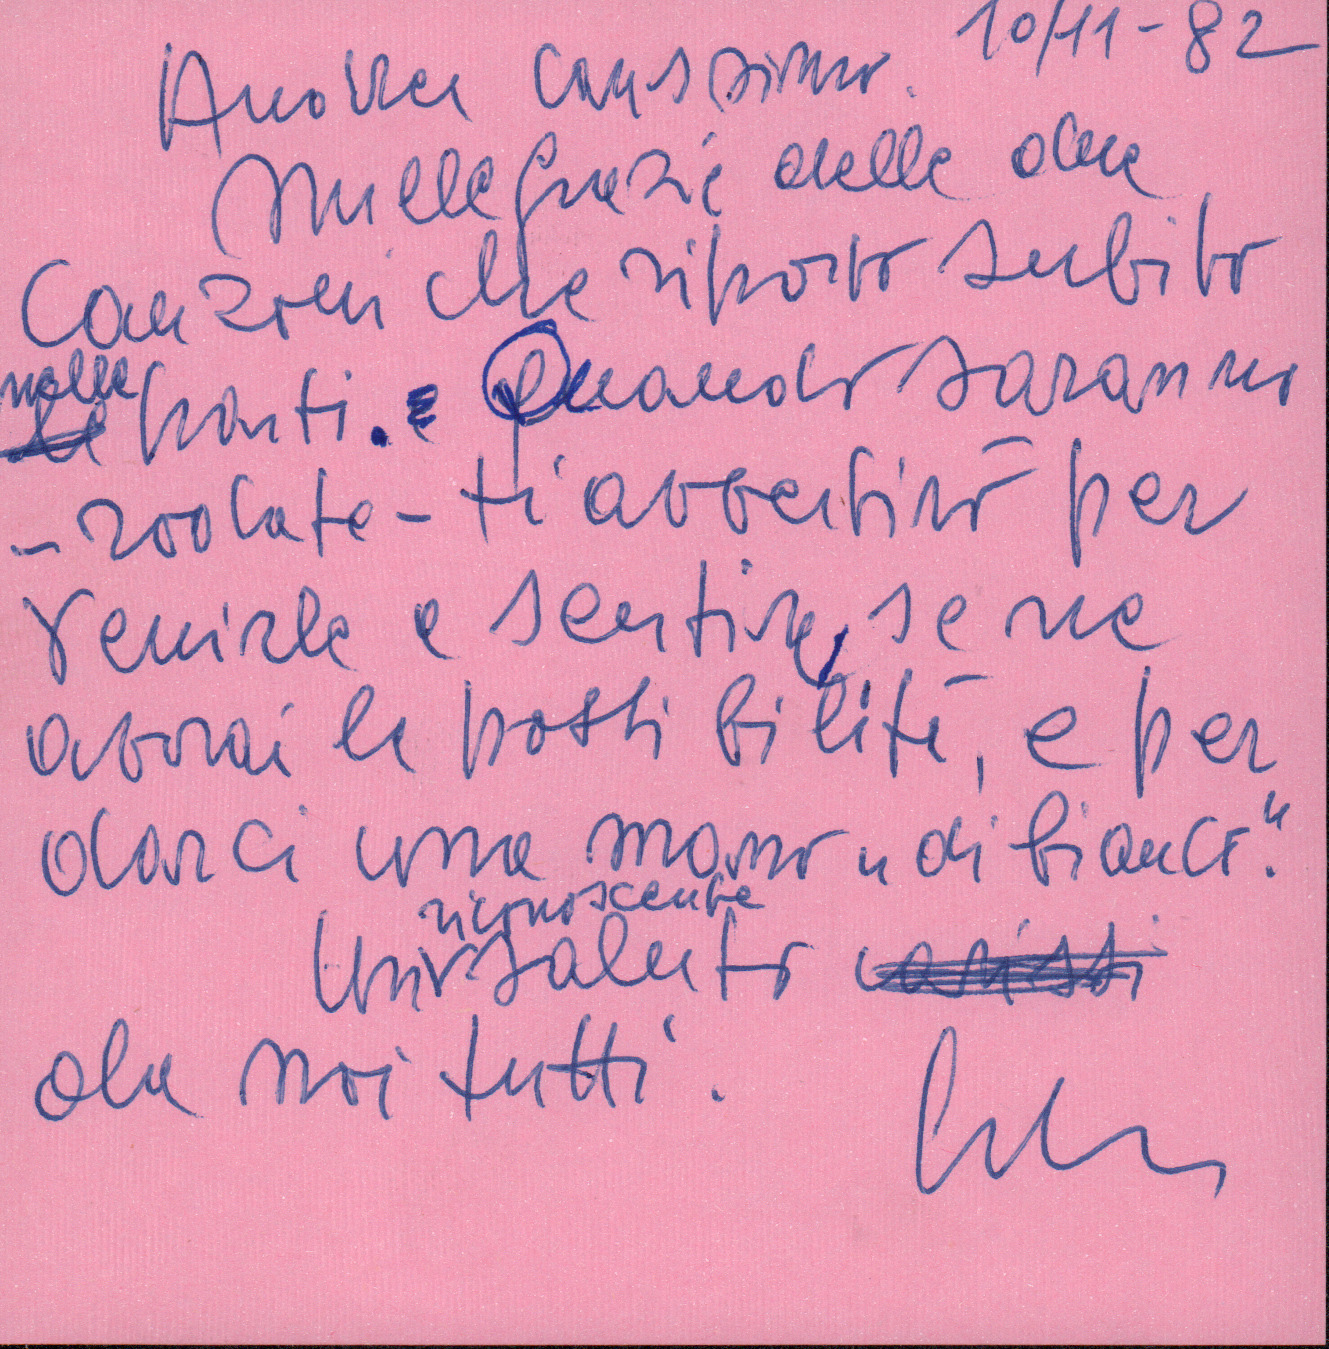 10/11-82
Andrea carissimo.
Mille grazie delle due
Canzoni che riporto subito
nelle parti. Quando saranno
- rodate - ti avvertirò per
venirle a sentire, se ne
avrai la possibilità, e per
darci una mano "di bianco."
riconoscente
Un saluto
da noi tutti.